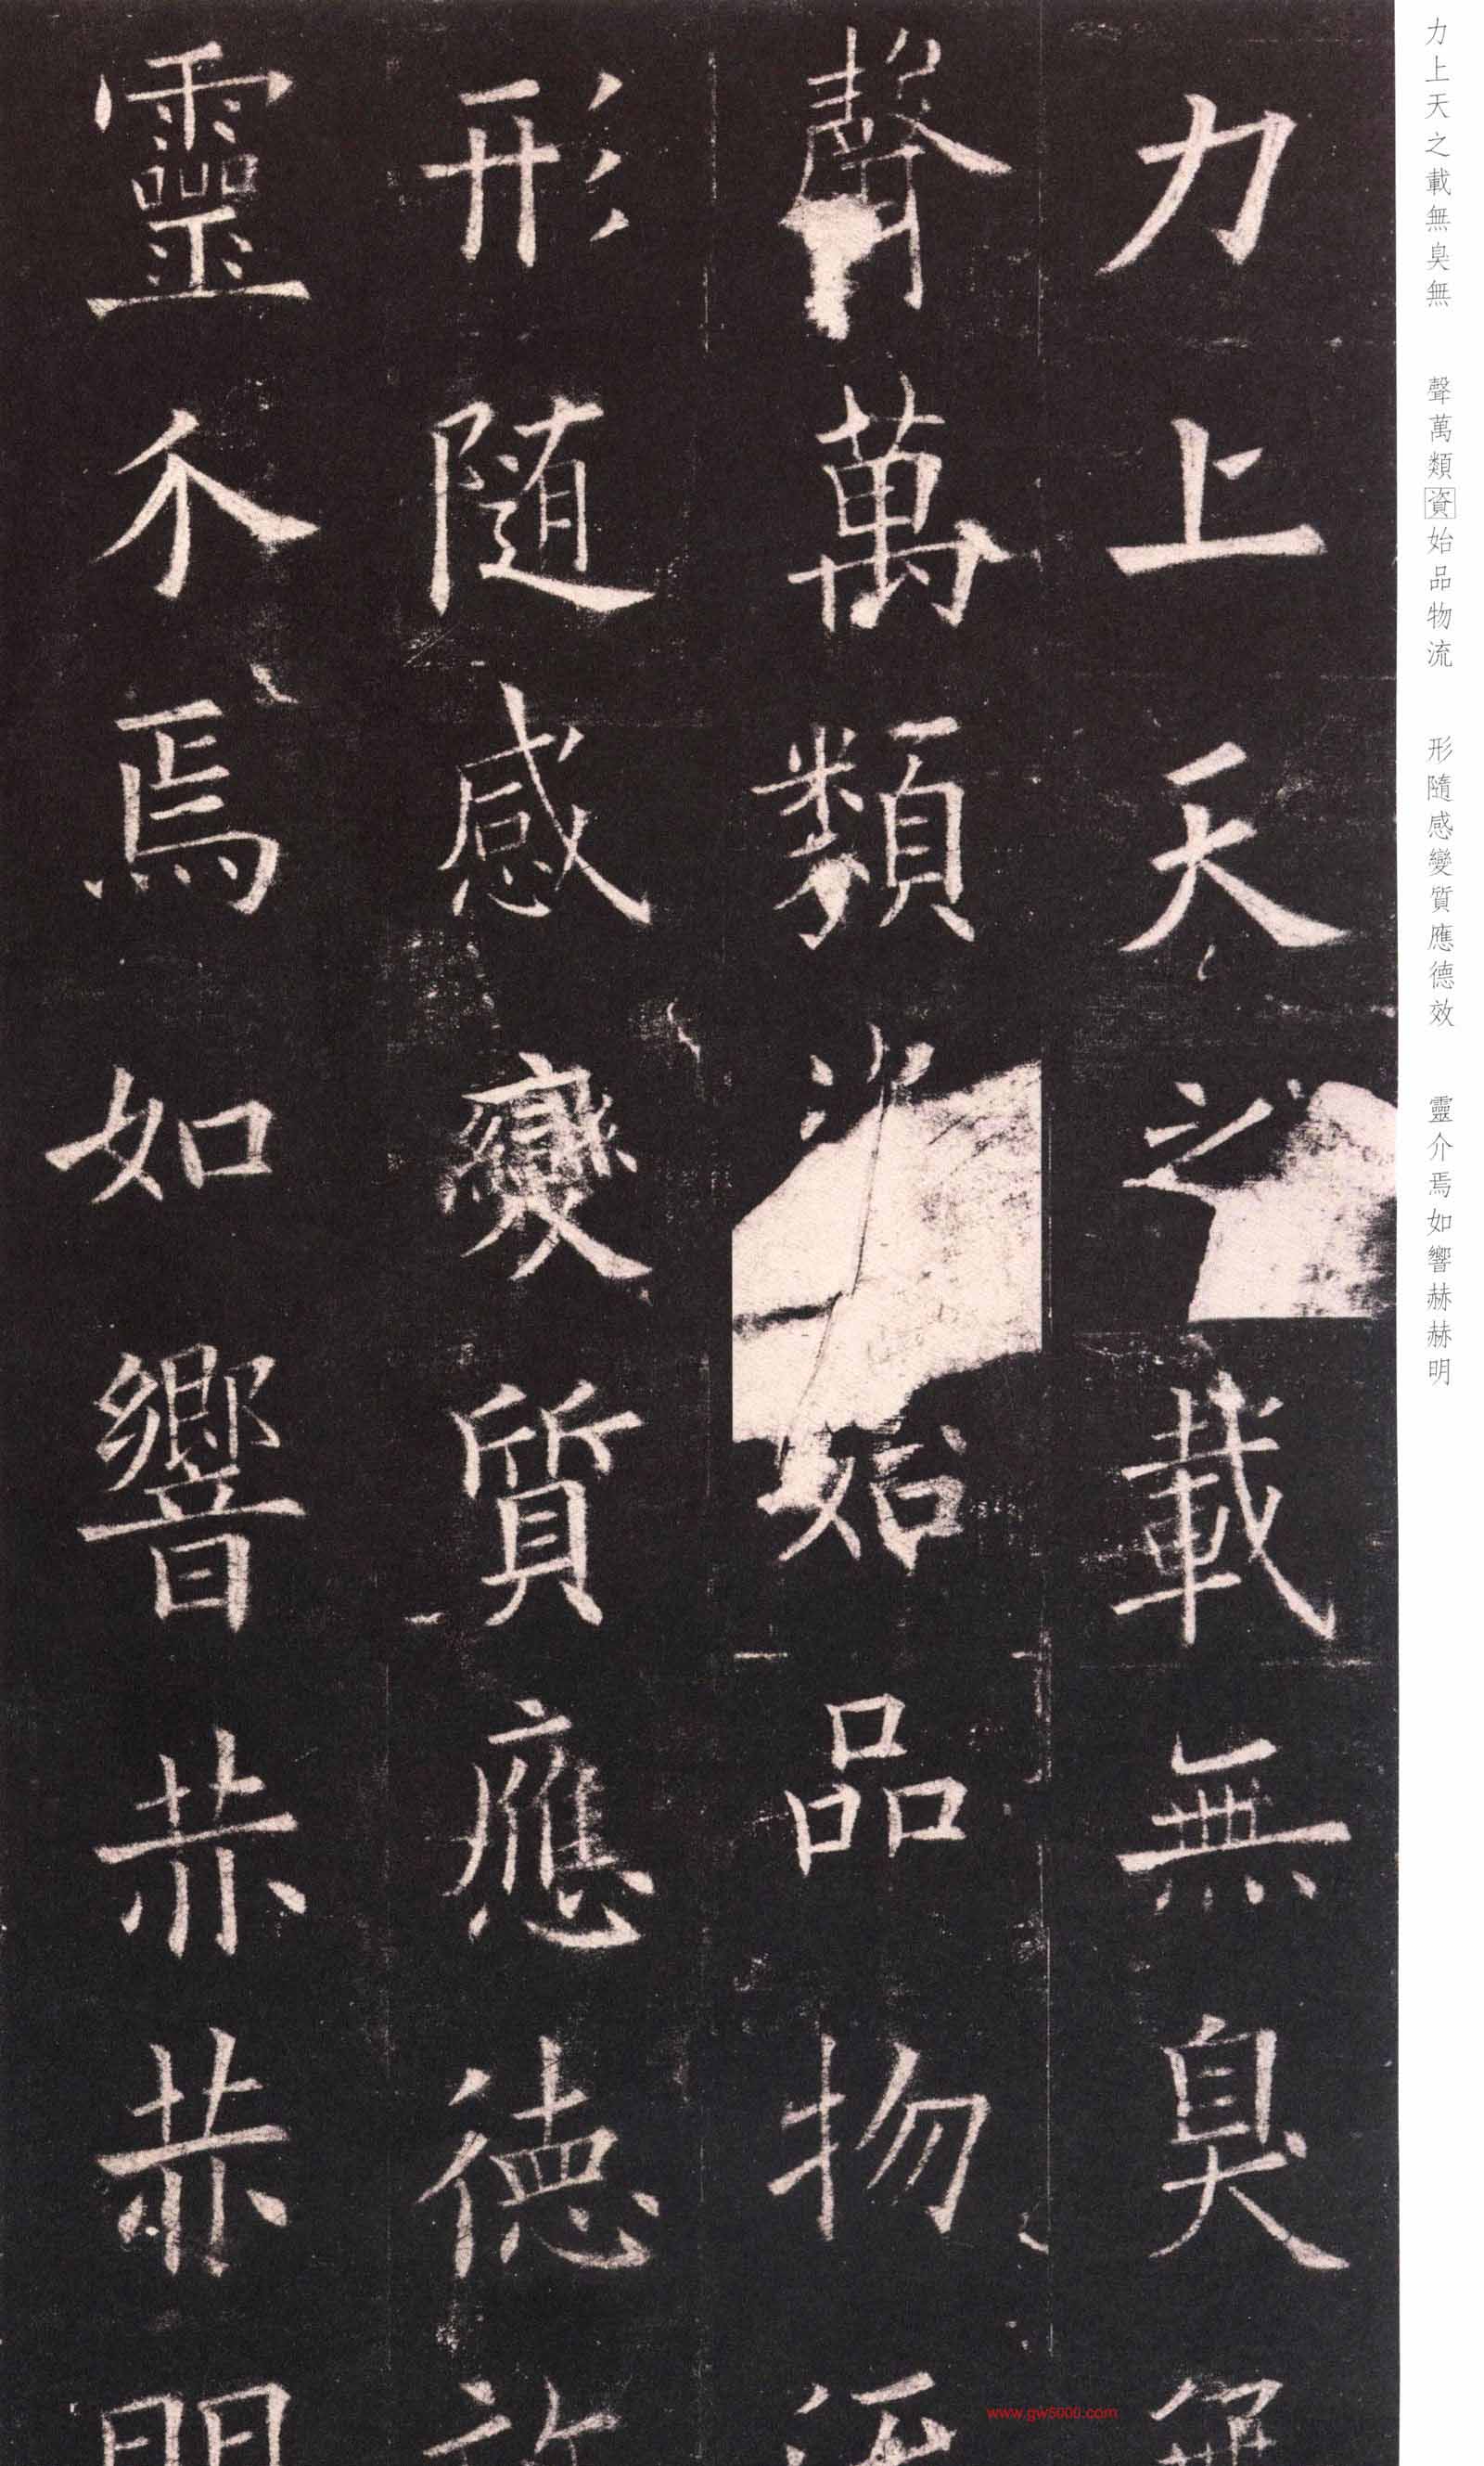 力上天之載無臭無
聲萬類始品物流
形隨感變質應德效
靈介焉如響赫赫明
力上天之載無臭無　聲萬類資始品物流　形隨感變質應德效　靈介焉如響赫赫明
www.gw5000.com